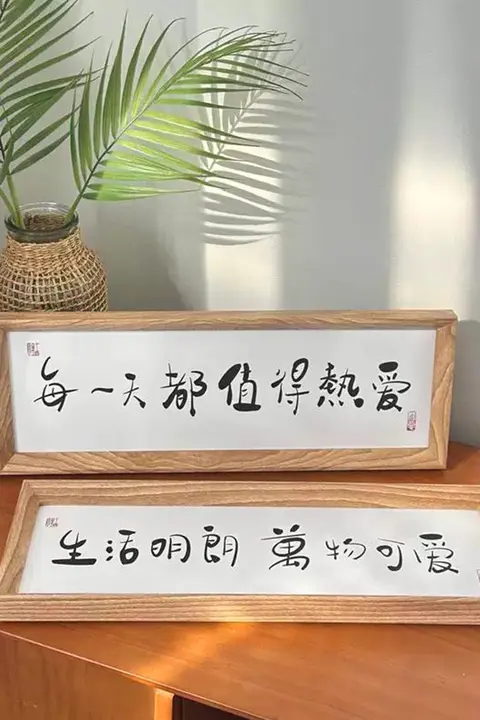 每一天都值得熱爱
生活明朗 萬物可爱